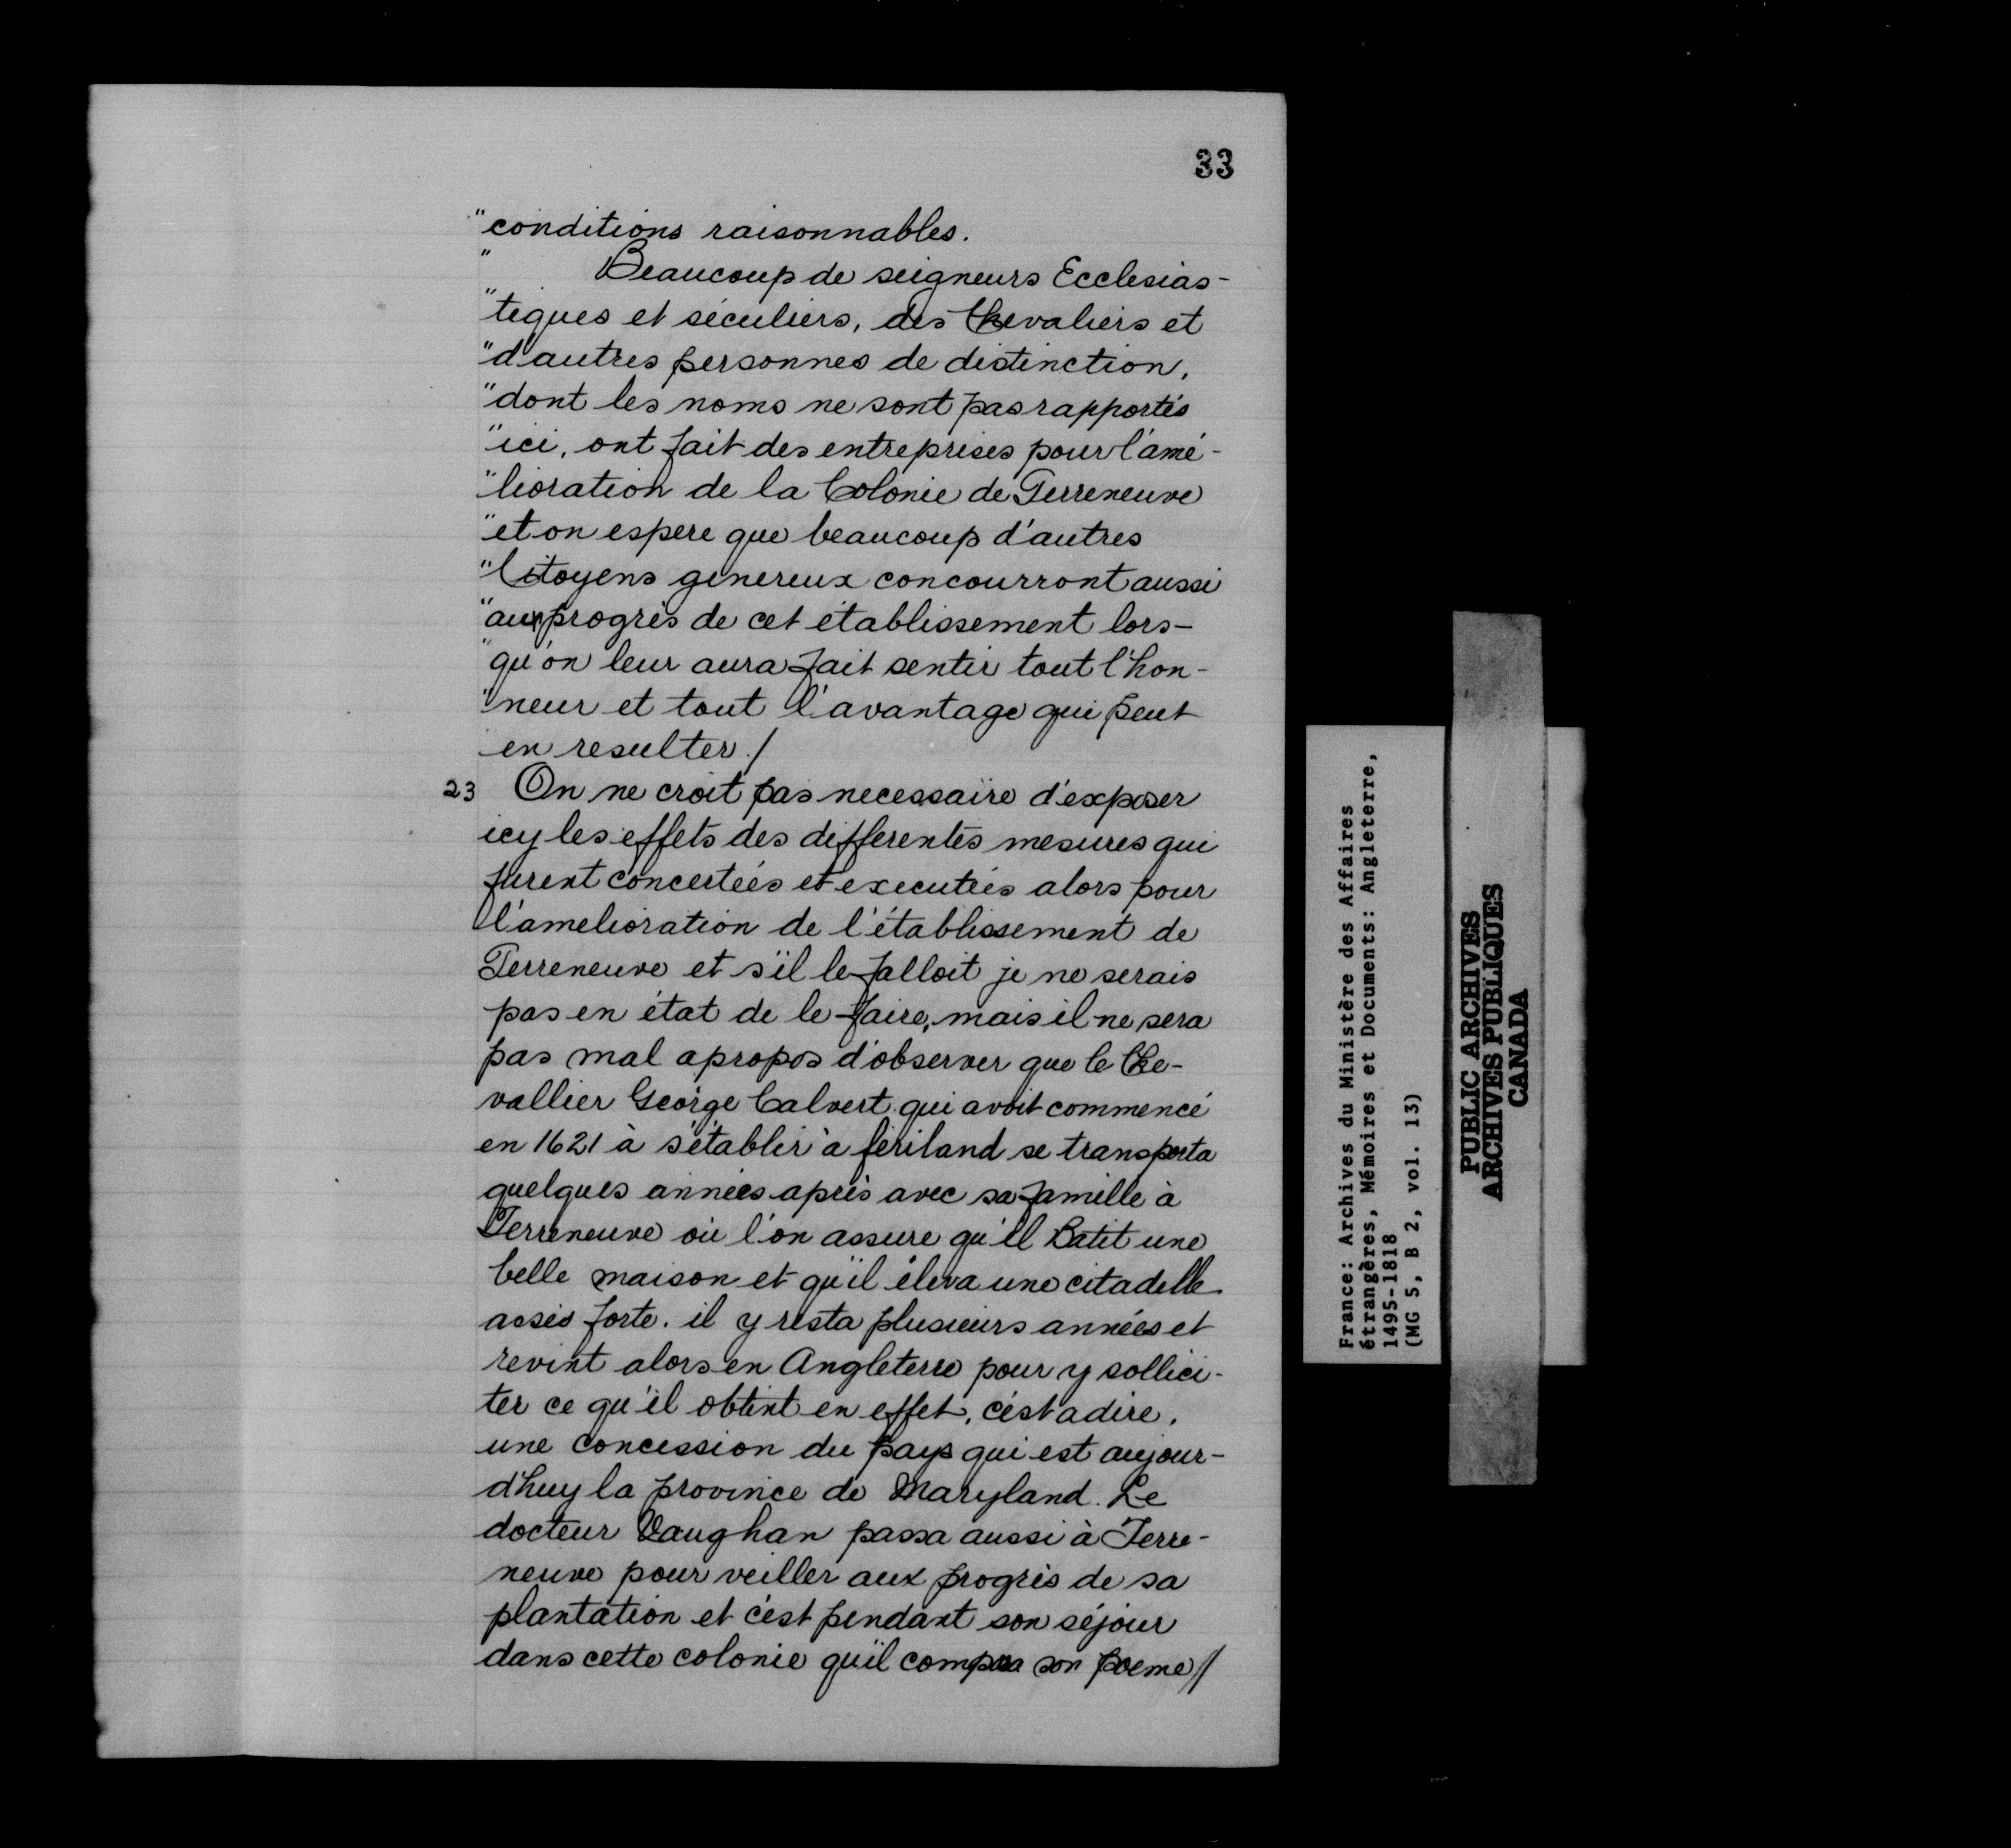 33
"conditions raisonnables.
" Beaucoup de seigneurs Ecclesias-
"tiques et séculiers, des Chevaliers et
"d'autres personnes de distinction,
"dont les noms ne sont pas rapportés
"ici, ont fait des entreprises pour l'amé-
"lioration de la Colonie de Terreneuve
"et on espere que beaucoup d'autres
"Citoyens genereux concourront aussi
"aux progrès de cet établissement lors-
"qu'on leur aura fait sentir tout l'hon-
"neur et tout l'avantage qui peut
en resulter./
23 On ne croit pas necessaire d'exposer
icy les effets des differentes mesures qui
furent concertées et executées alors pour
l'amelioration de l'établissement de
Terreneuve et s'il le falloit je ne serais
pas en état de le faire, mais il ne sera
pas mal apropos d'observer que le Che-
vallier George Calvert qui avoit commencé
en 1621 à s'établir à feriland se transporta
quelques années après avec sa famille à
Terreneuve où l'on assure qu'il Batit une
belle maison et qu'il éleva une citadelle
assés forte. il y resta plusieurs années et
revint alors en Angleterre pour y sollici-
ter ce qu'il obtint en effet, c'est adire,
une concession du pays qui est aujour-
d'huy la province de Maryland. Le
docteur Vaughan passa aussi à Terre-
neuve pour veiller aux progrès de sa
plantation et c'est pendant son séjour
dans cette colonie qu'il composa son poeme//
France: Archives du Ministère des Affaires
étrangères, Mémoires et Documents: Angleterre,
1495-1818
(MG 5, B 2, vol. 13)
PUBLIC ARCHIVES
ARCHIVES PUBLIQUES
CANADA